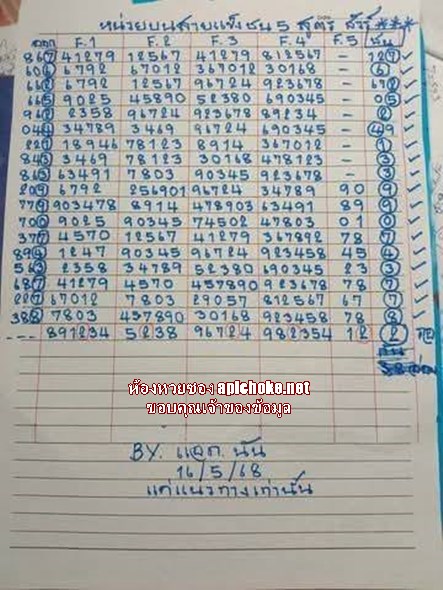 หน่วยบนสายแข็งชน 5 สูตร
ออก F.1 F.2 F.3 F.4 F.5 ชน
867 41279 12567 41279 812567 – 127 ✓
606 6792 67012 367012 30168 – 6 ✓
662 6792 12567 96724 923678 – 672 ✓
665 9025 45890 52380 690345 – 05 ✓
962 2358 96724 923678 89234 – 2 ✓
044 34789 3469 96724 690345 – 49 ✓
221 18946 78123 8914 367012 – 1 ✓
843 3469 78123 30168 478123 – 3 ✓
863 63491 7803 90345 923678 – 3 ✓
209 6792 256901 96724 34789 90 9 ✓
779 903478 8914 478903 63491 89 9 ✓
700 9025 90345 74502 47803 01 0 ✓
377 4570 12567 41279 367892 78 7 ✓
894 1247 90345 96724 923458 45 4 ✓
563 2358 34789 52380 690345 23 3 ✓
687 41279 4570 457890 923678 78 7 ✓
227 67012 7803 29057 812567 67 7 ✓
388 7803 457890 30168 923458 78 8 ✓
--- 891234 5238 96724 982354 12 2
ห้องหวยซอง apichoke.net
ขอบคุณเจ้าของข้อมูล
BY. แอด. นัน
16/5/68
แค่แนวทางเท่านั้น